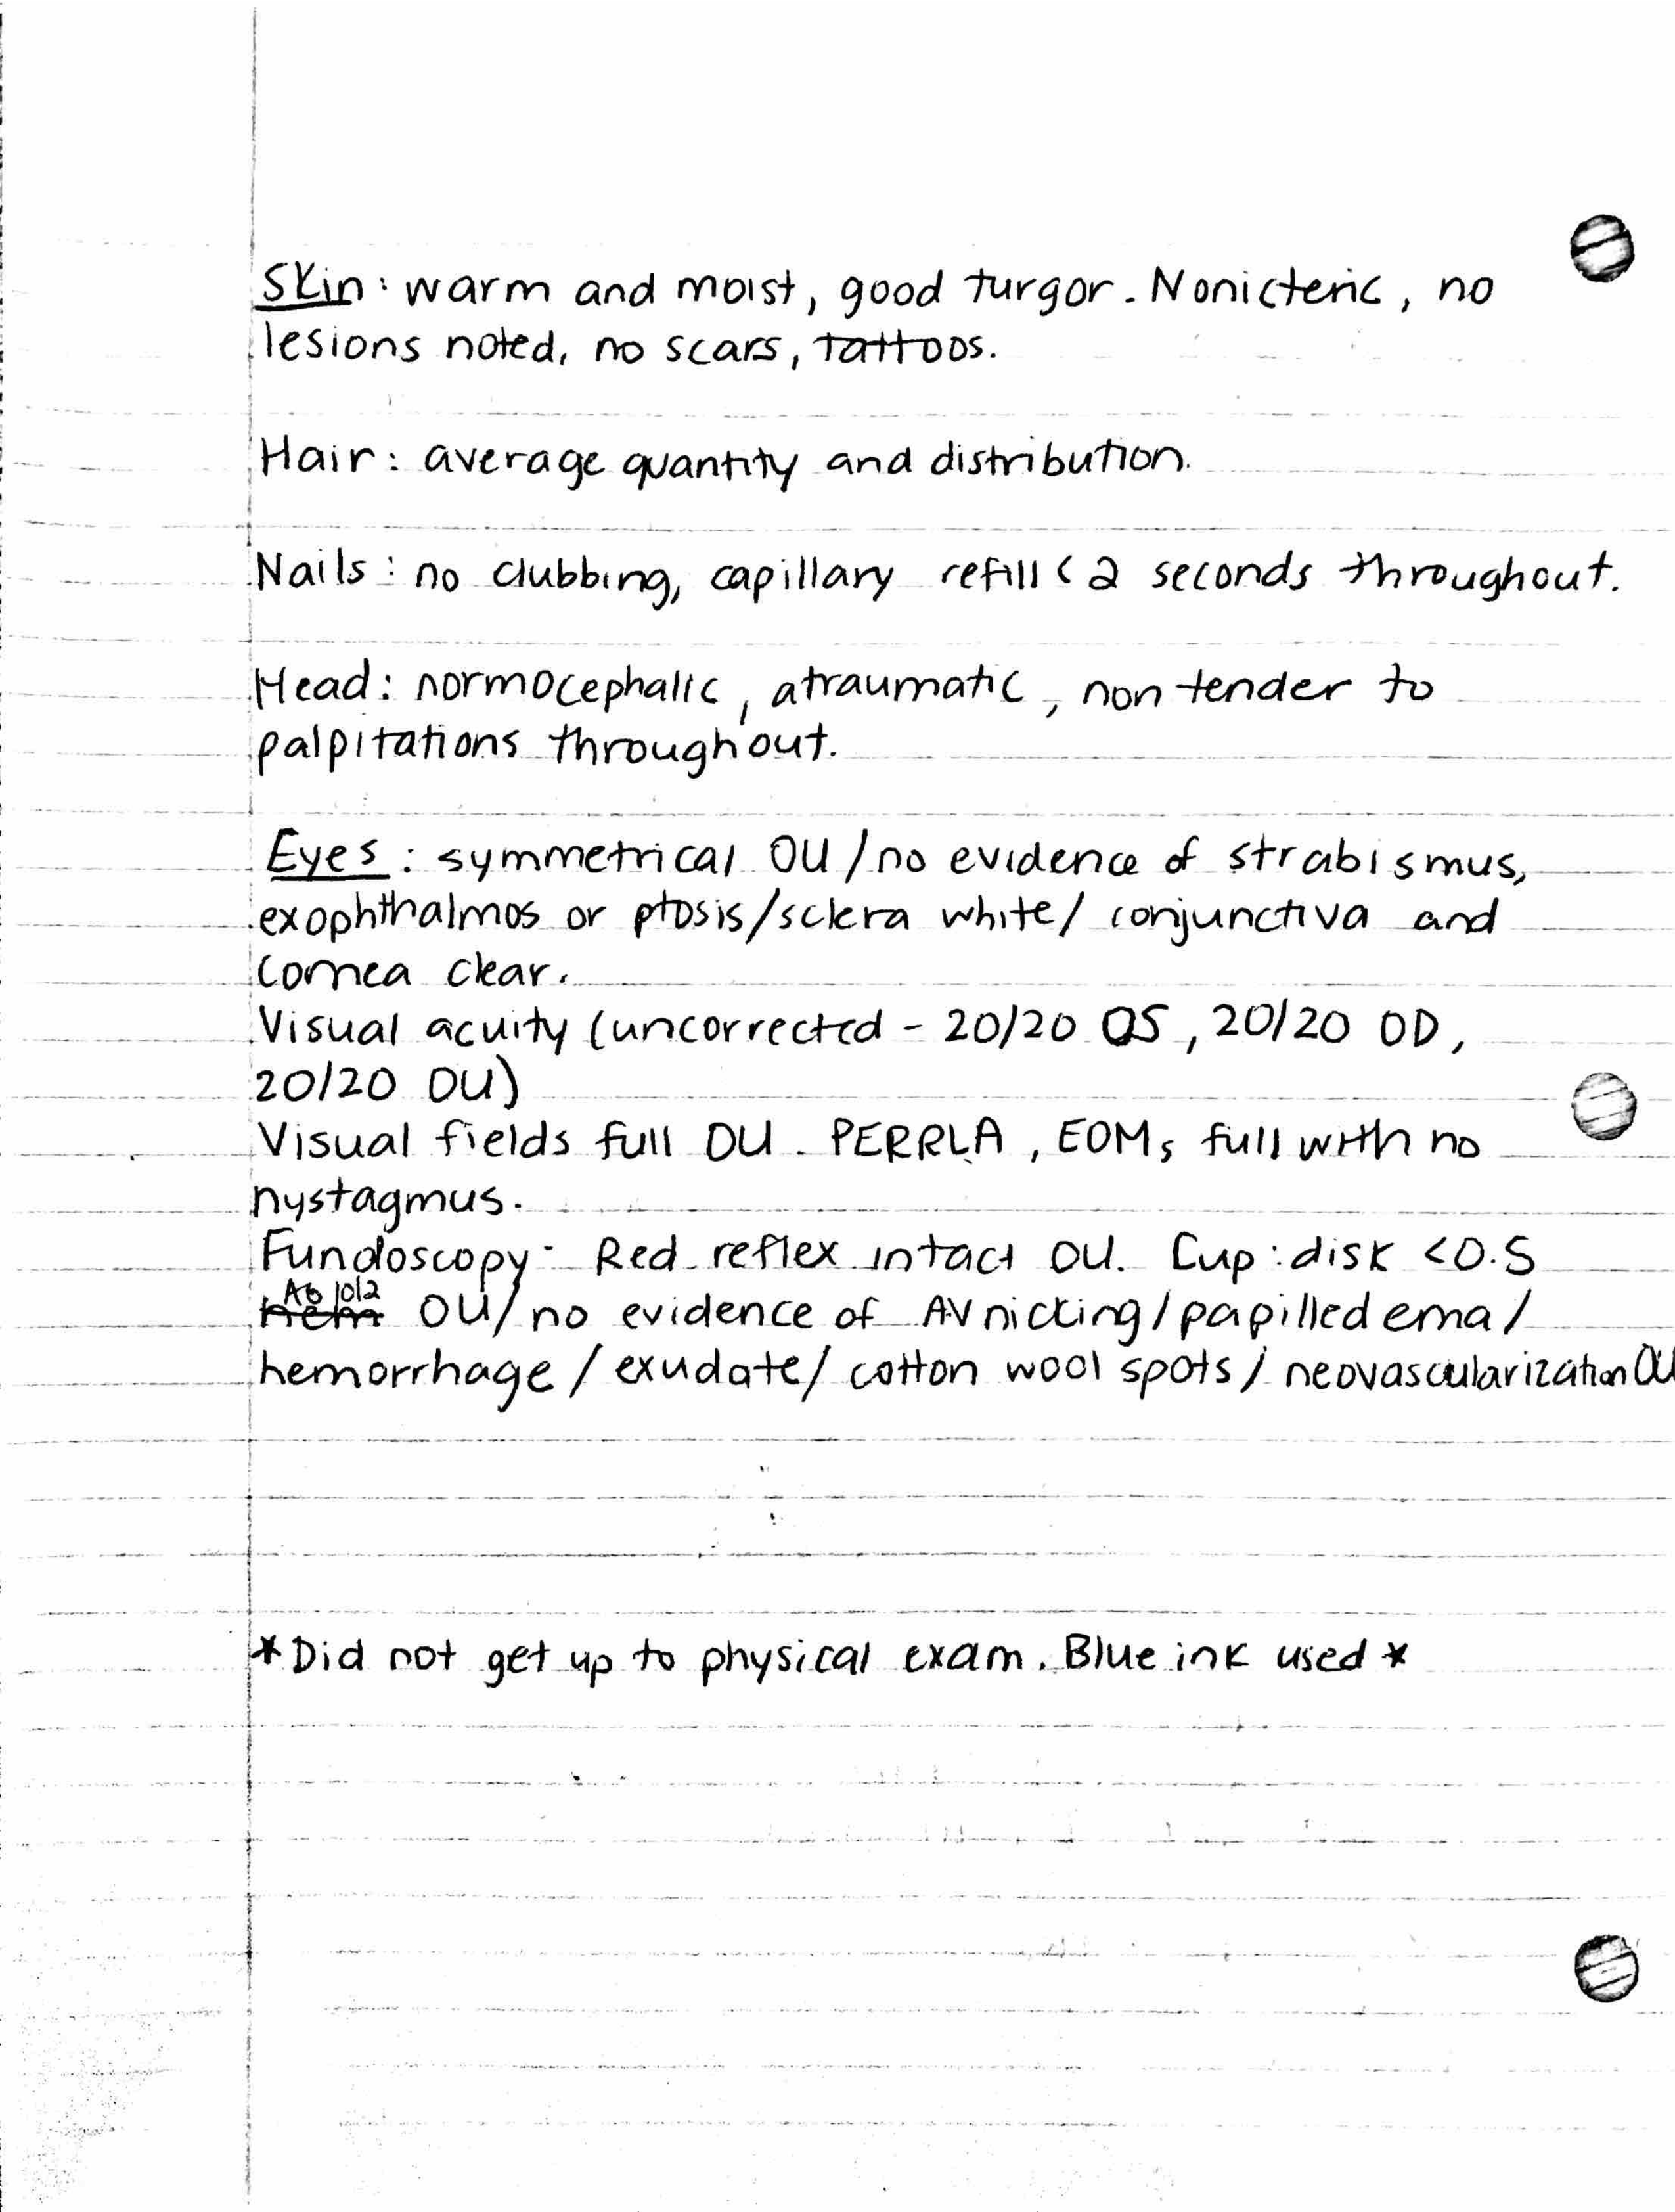 Skin: warm and moist, good turgor. Nonicteric, no
lesions noted, no scars, tattoos.
Hair: average quantity and distribution.
Nails: no clubbing, capillary refill < 2 seconds throughout.
Head: normocephalic, atraumatic, non tender to
palpitations throughout.
Eyes: symmetrical OU / no evidence of strabismus,
exophthalmos or ptosis/sclera white/ conjunctiva and
cornea clear.
Visual acuity (uncorrected - 20/20 OS, 20/20 OD,
20/20 OU)
Visual fields full OU. PERRLA, EOMs full with no
nystagmus.
Fundoscopy- Red reflex intact OU. Cup:disk <0.5
OU/ no evidence of AV nicking/papilledema/
hemorrhage / exudate/ cotton wool spots / neovascularization OU
*Did not get up to physical exam. Blue ink used*